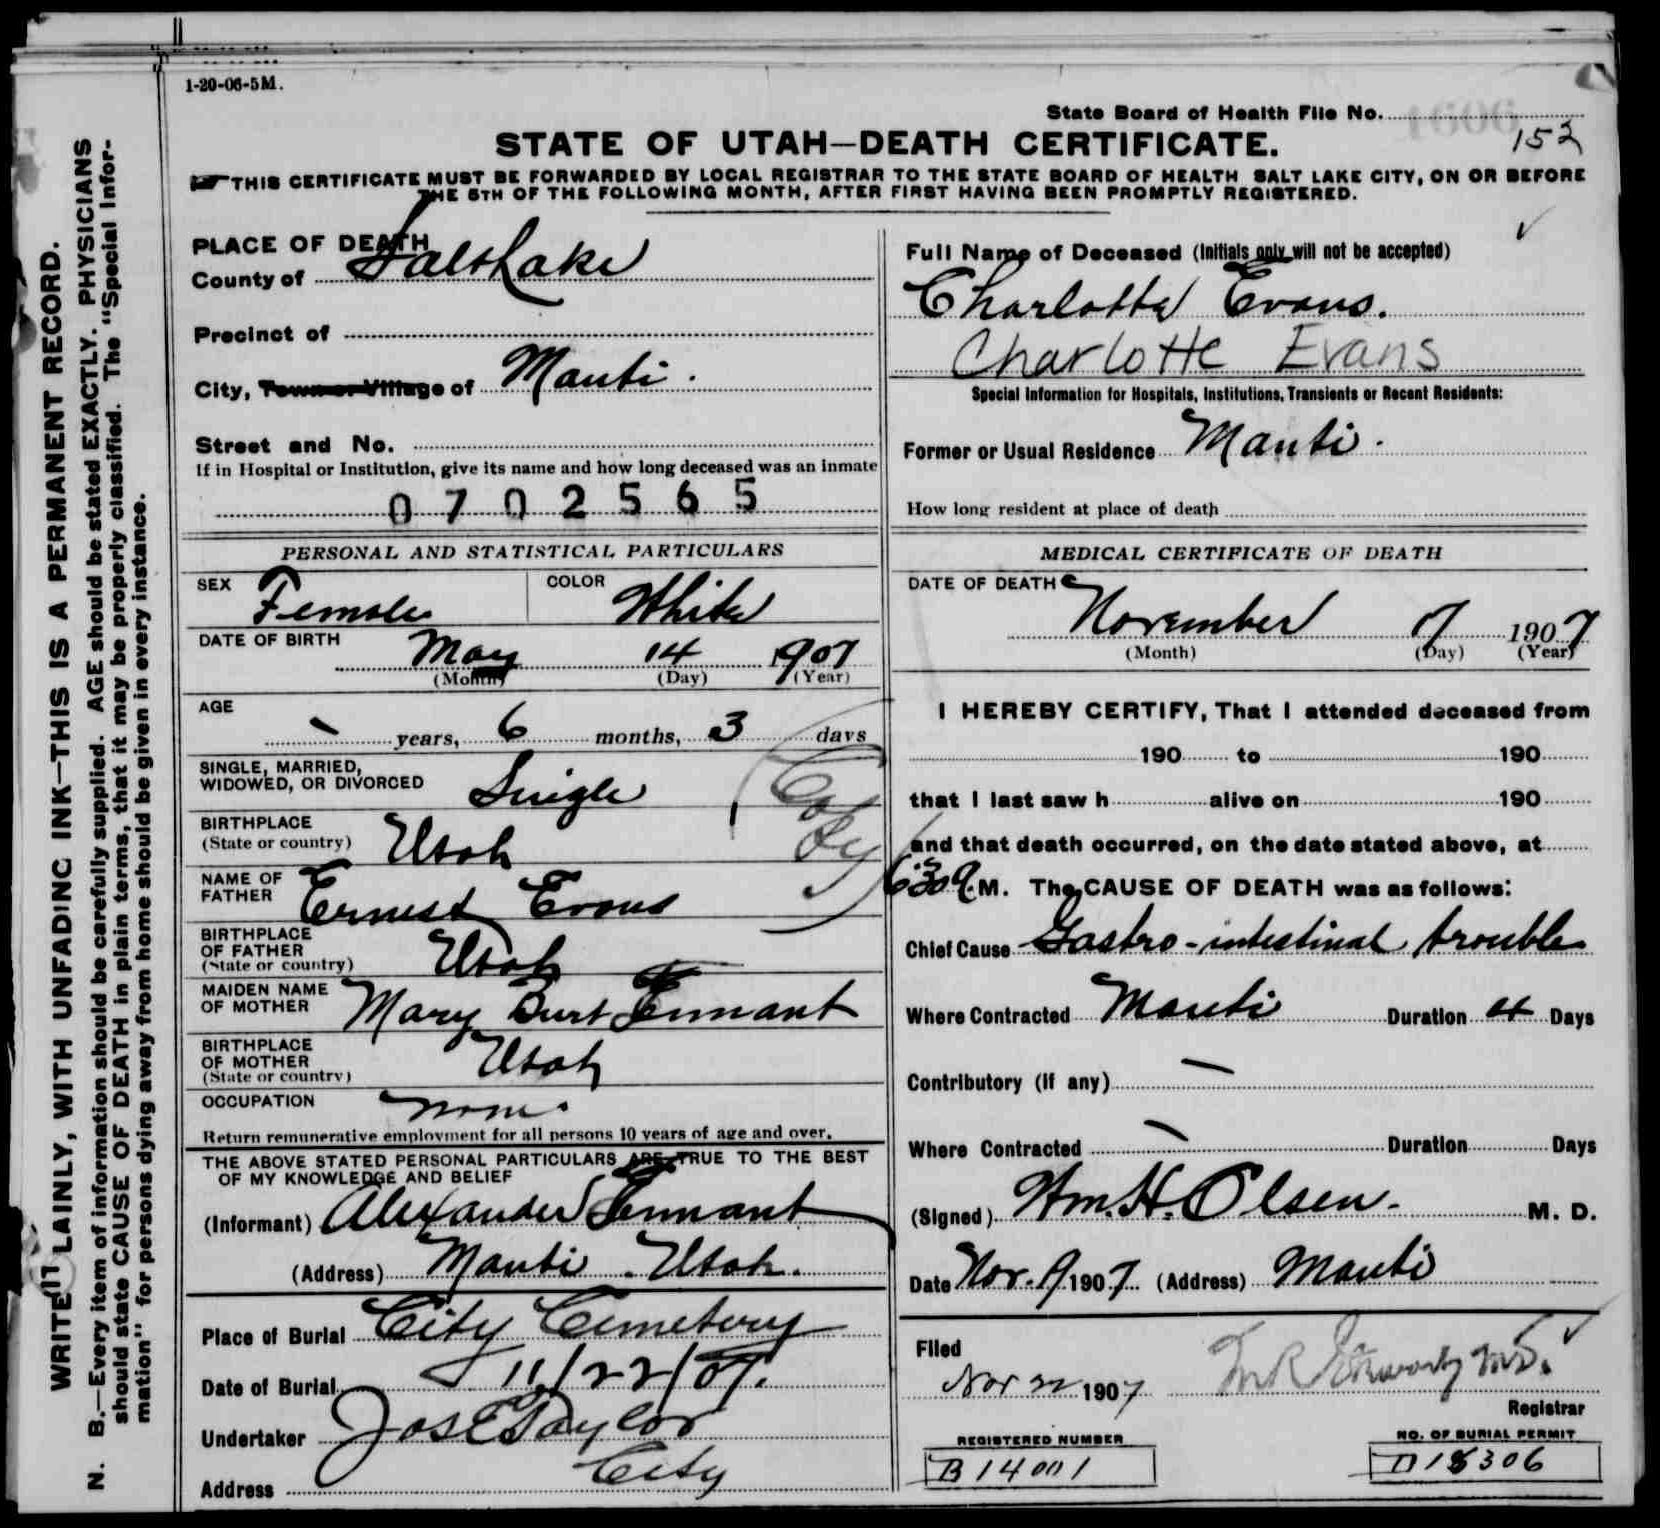 1-20-06-5M.
State Board of Health File No.
1606
152
STATE OF UTAH—DEATH CERTIFICATE.
THIS CERTIFICATE MUST BE FORWARDED BY LOCAL REGISTRAR TO THE STATE BOARD OF HEALTH SALT LAKE CITY, ON OR BEFORE
THE 5TH OF THE FOLLOWING MONTH, AFTER FIRST HAVING BEEN PROMPTLY REGISTERED.
WRITE PLAINLY, WITH UNFADING INK—THIS IS A PERMANENT RECORD.
N. B.—Every item of information should be carefully supplied. AGE should be stated EXACTLY. PHYSICIANS
should state CAUSE OF DEATH in plain terms, that it may be properly classified. The "Special Infor-
mation" for persons dying away from home should be given in every instance.
PLACE OF DEATH
County of Salt Lake
Precinct of
City, Town or Village of Manti.
Street and No.
If in Hospital or Institution, give its name and how long deceased was an inmate
0702565
PERSONAL AND STATISTICAL PARTICULARS
SEX Female COLOR White
DATE OF BIRTH May 14 1907
(Month) (Day) (Year)
AGE
— years, 6 months, 3 days
SINGLE, MARRIED,
WIDOWED, OR DIVORCED Single
BIRTHPLACE
(State or country) Utah
NAME OF
FATHER Ernest Evans
BIRTHPLACE
OF FATHER
(State or country) Utah
MAIDEN NAME
OF MOTHER Mary Burt Tennant
BIRTHPLACE
OF MOTHER
(State or country) Utah
OCCUPATION none.
Return remunerative employment for all persons 10 years of age and over.
THE ABOVE STATED PERSONAL PARTICULARS ARE TRUE TO THE BEST
OF MY KNOWLEDGE AND BELIEF
(Informant) Alexander Tennant
(Address) Manti Utah.
Place of Burial City Cemetery
Date of Burial 11/22/07.
Undertaker Jos E Taylor
Address City
Full Name of Deceased (Initials only will not be accepted)
Charlotte Evans.
Charlotte Evans
Special Information for Hospitals, Institutions, Transients or Recent Residents:
Former or Usual Residence Manti.
How long resident at place of death
MEDICAL CERTIFICATE OF DEATH
DATE OF DEATH
November 17 1907
(Month) (Day) (Year)
I HEREBY CERTIFY, That I attended deceased from
190 to 190
that I last saw h alive on 190
and that death occurred, on the date stated above, at
6:30 A.M. The CAUSE OF DEATH was as follows:
Chief Cause Gastro-intestinal trouble
Where Contracted Manti Duration 4 Days
Contributory (If any) —
Where Contracted — Duration Days
(Signed) Wm. H. Olsen. M. D.
Date Nov. 19 1907 (Address) Manti
Filed
Nov 22 1907
Registrar
REGISTERED NUMBER
B 14001
NO. OF BURIAL PERMIT
D 18306